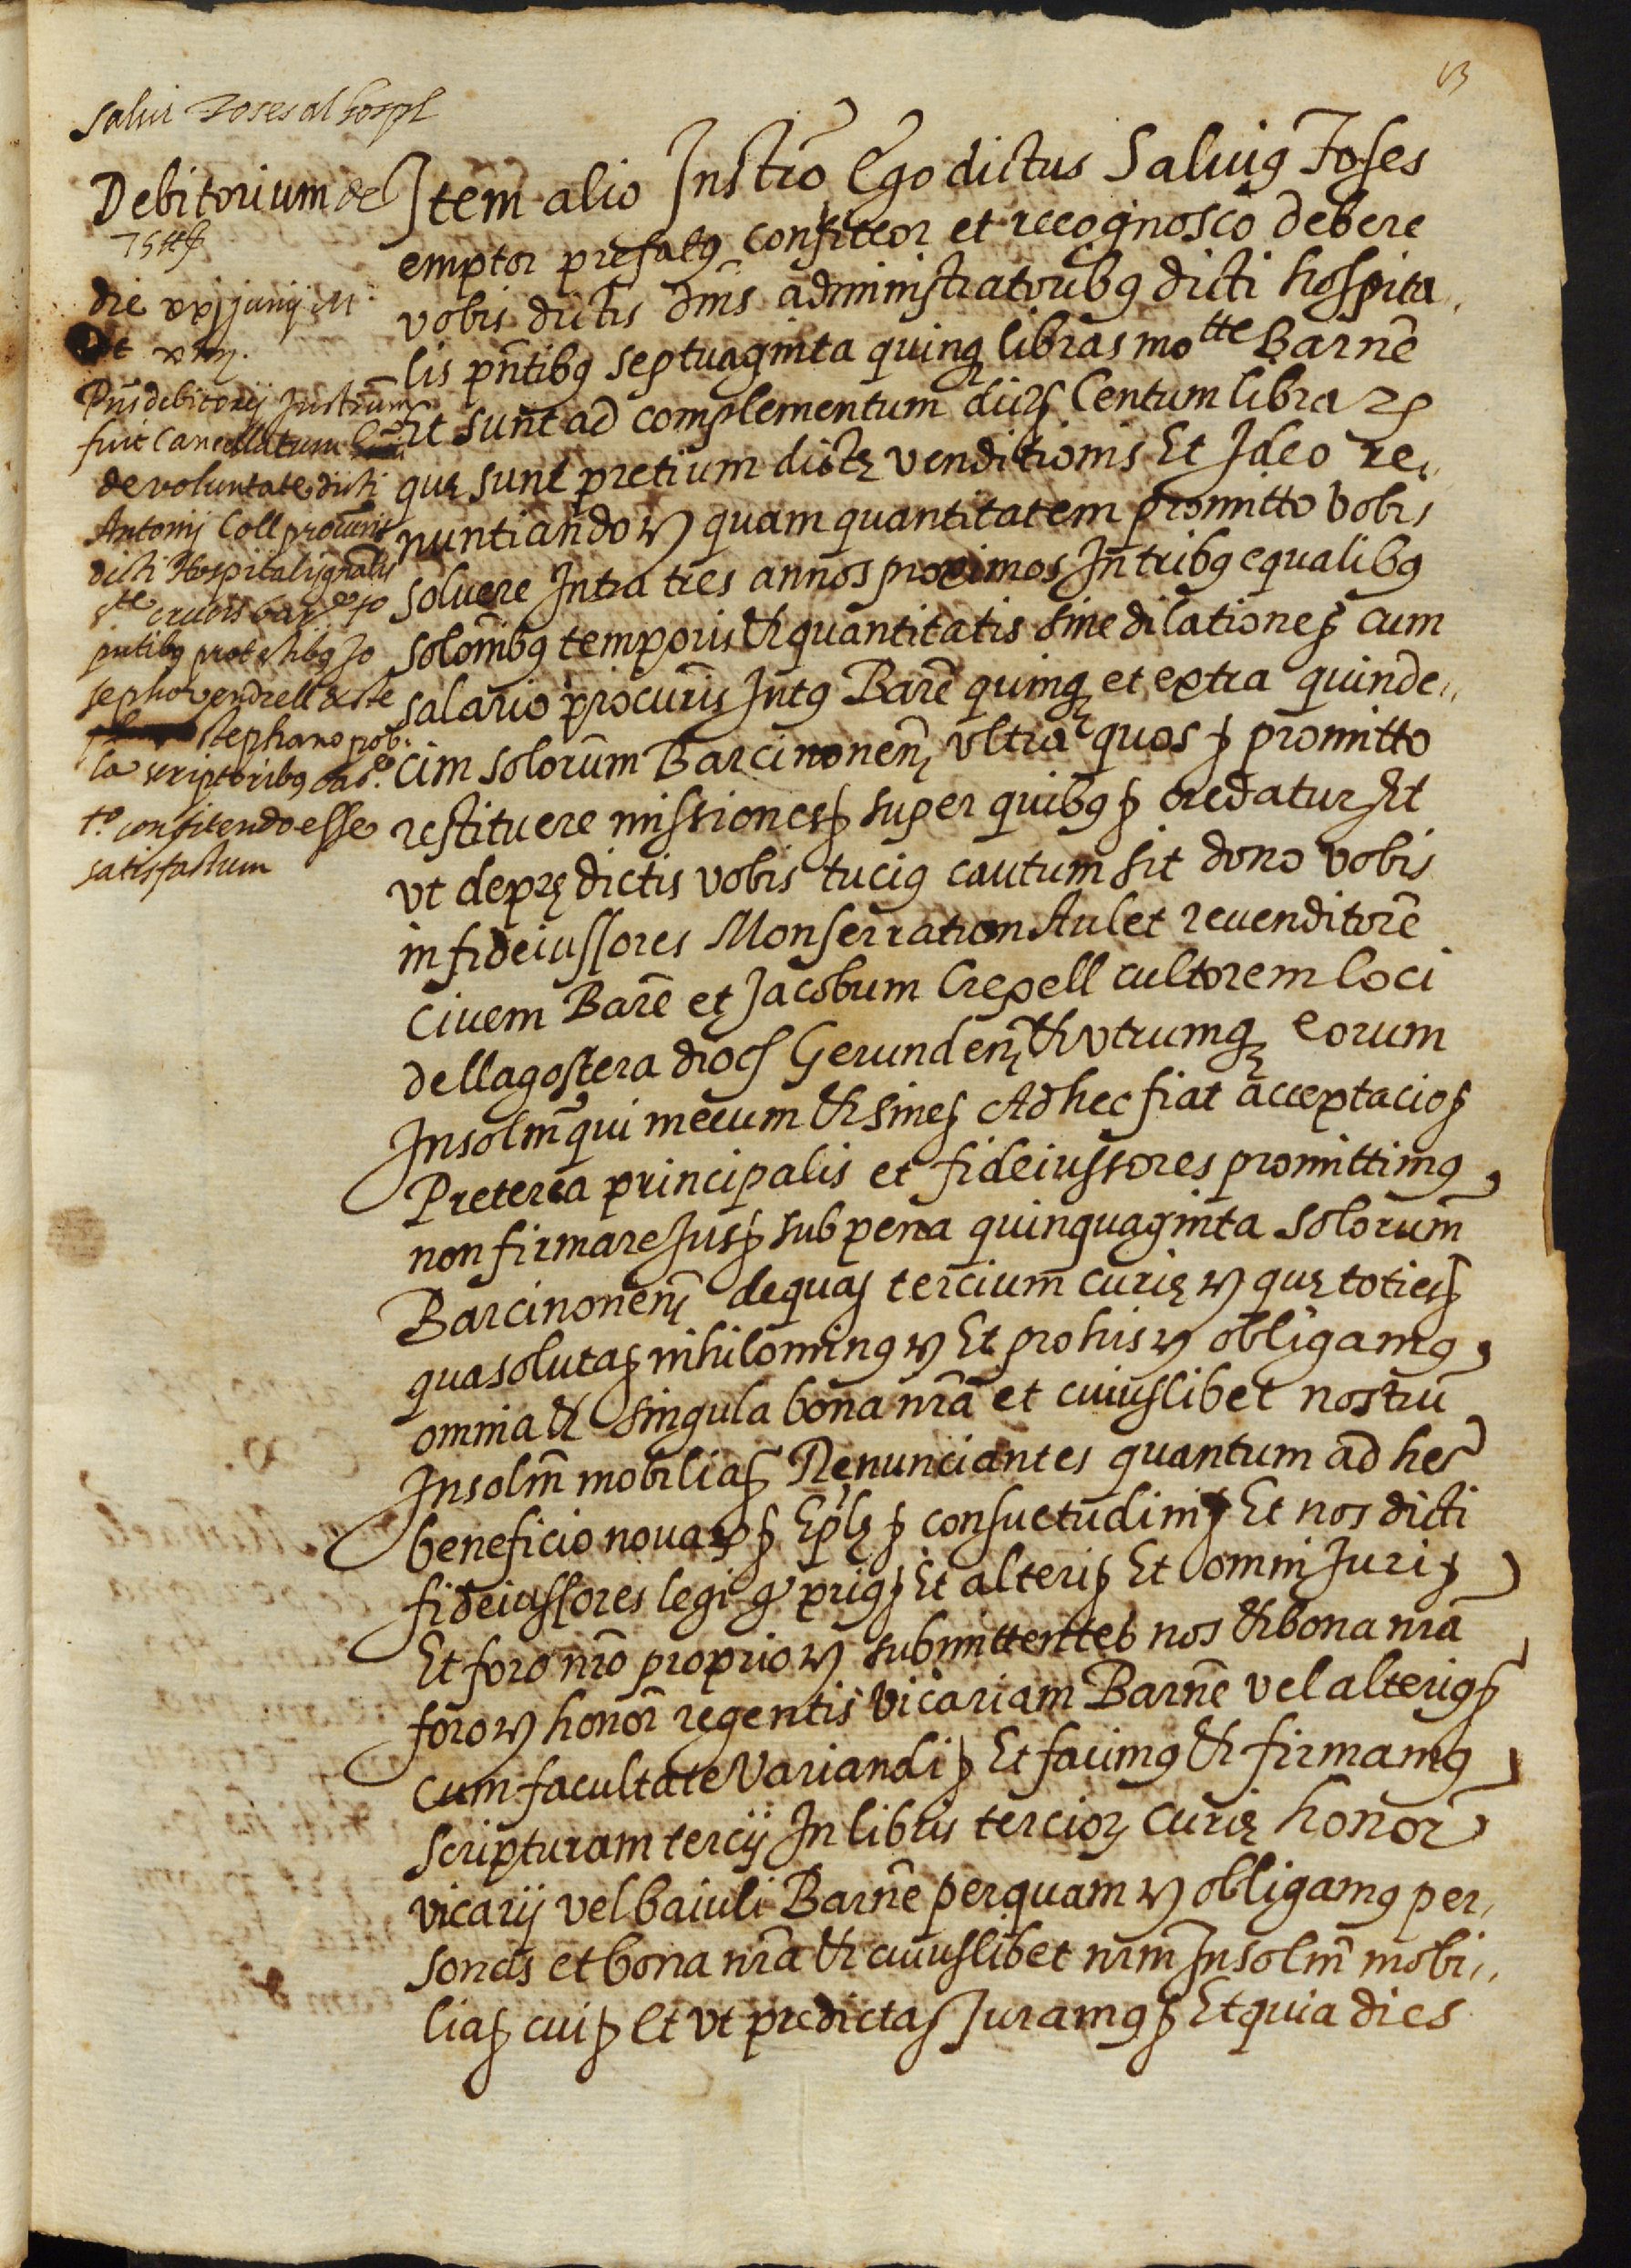 13
Salvi Foses al hospl
Debitorium de
75 ₶ ß
die xxj junij M
xiiij.
Pñs debitorij Instrum
fuit Cancellatum
de voluntate dicti
Antonij Coll procuris
dicti Hospitalis gñalis
Ste crucis bar
pñtibꝰ pro testibꝰ Jo
sepho vendrell
Stephano pob.
la scriptoribꝰ
confitendo esse
satisfactum
Item alio Instr̃o Ego dictus Saluiꝰ Foses
emptor prefatꝰ confiteor et recognosco debere
vobis dictis dñis administratoribꝰ dicti hospita„
lis pñtibꝰ septuaginta quinqꝫ libras mo^tte Barñe
Et sunt ad complementum dictꝝ Centum libraꝝ
quę sunt pretium dictę venditionis Et Ideo re„
nuntiando ꝛc quam quantitatem promitto vobis
soluere Intra tres annos proximos In tribꝰ equalibꝰ
solõnibꝰ temporis & quantitatis sine dilatione ꝛc cum
salario procuris Intꝰ Barñe quinqꝫ et extra quinde„
cim solorum Barcinonen̄ vltra quos ꝛc promitto
restituere missiones ꝛc super quibꝰ ꝛc credatur Et
vt de prędictis vobis tuciꝰ cautum sit dono vobis
in fideiussores Monserratum Aulet reuenditorẽ
Ciuem Barñe et Jacobum Crexell cultorem loci
de llagostera dioc̃ Gerunden̄ & vtrumqꝫ eorum
Insolm̃ qui mecum & sine ꝛc Ad hec fiat acceptacio ꝛc
Preterea principalis et fideiussores promittimꝰ
non firmare Jus ꝛc sub pena quinquaginta solorum
Barcinonen̄ de qua ꝛc tercium curię ꝛc quę toties ꝛc
qua soluta ꝛc nihilominꝰ ꝛc Et pro his ꝛc obligamꝰ
omnia & singula bona nr̃a et cuiuslibet nostrũ
Insolm̃ mobilia ꝛc Renunciantes quantum ad hec
beneficio nouaꝝ ꝛc Ep̃lę ꝛc consuetudini ꝛc Et nos dicti
fideiussores legi q̃ priꝰ ꝛc Et alteri ꝛc Et omni Juri ꝛc
Et foro nr̃o proprio ꝛc submittentes nos & bona nr̃a
foro ꝛc honor̃ regentis vicariam Barñe vel alteriꝰ ꝛc
cum facultate variandi ꝛc Et facimꝰ & firmamꝰ
scripturam tercij In libris tercioꝝ curię honor̃
vicarij vel baiuli Barñe per quam ꝛc obligamꝰ per„
sonas et bona nr̃a & cuiuslibet nr̃m Insolm̃ mobi„
lia ꝛc cui ꝛc Et vt predicta ꝛc Juramꝰ ꝛc Et quia dies